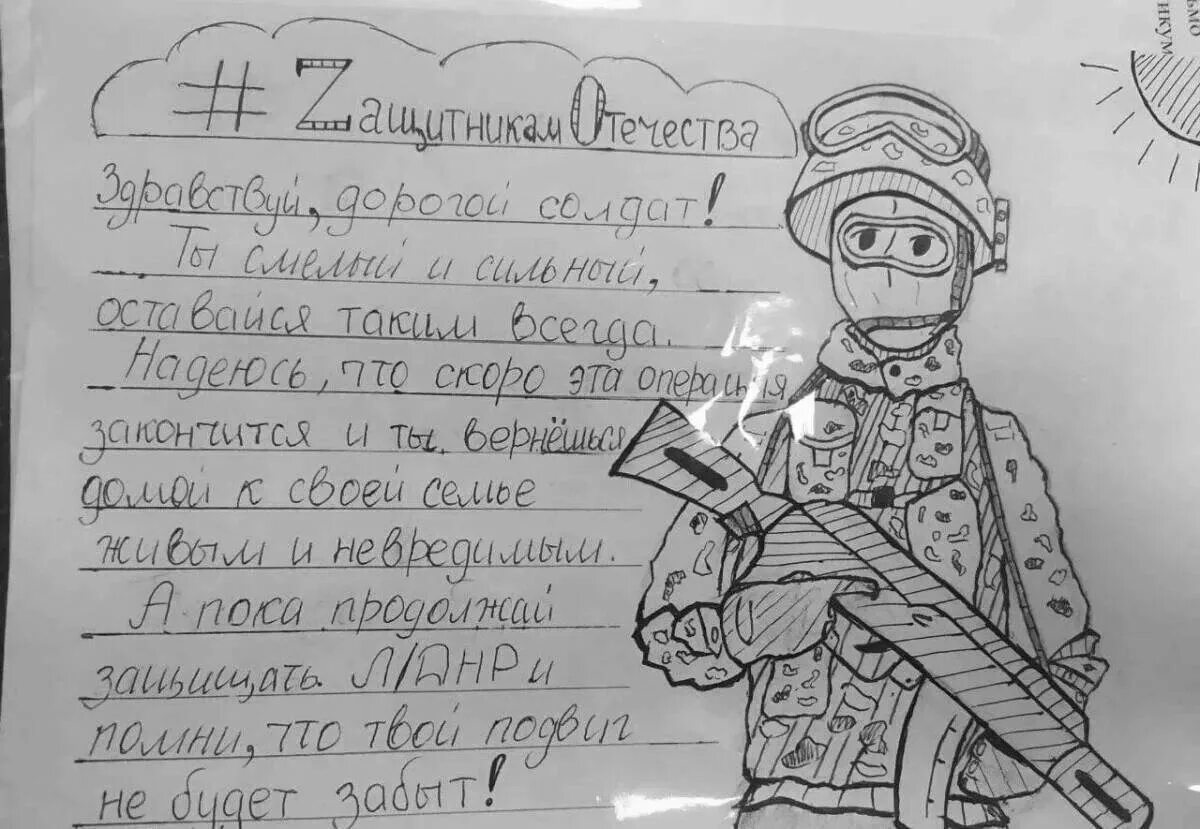 #ZащитникамОтечества
Здравствуй, дорогой солдат!
Ты смелый и сильный,
оставайся таким всегда.
Надеюсь, что скоро эта операция
закончится и ты вернёшься
домой к своей семье
живым и невредимым.
А пока продолжай
защищать Л/ДНР и
помни, что твой подвиг
не будет забыт!